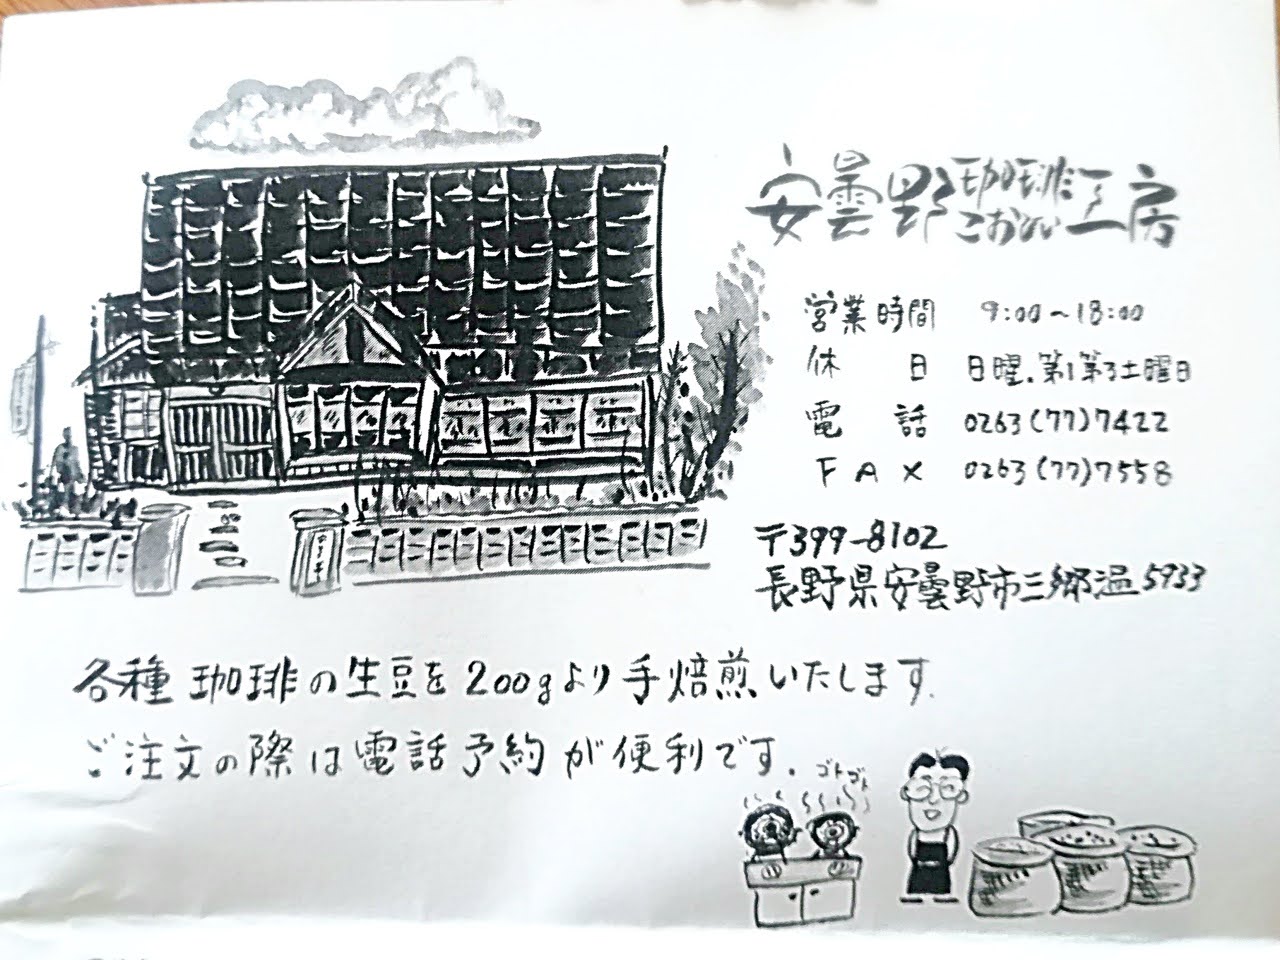 安曇野珈琲工房
こおひい
営業時間 9:00〜18:00
休日 日曜.第1第3土曜日
電話 0263(77)7422
FAX 0263(77)7558
〒399-8102
長野県安曇野市三郷温5933
各種珈琲の生豆を200gより手焙煎いたします.
ご注文の際は電話予約が便利です.
ゴトゴト